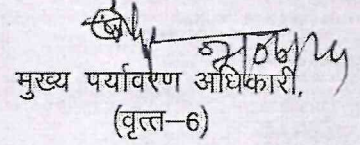 मुख्य पर्यावरण अधिकारी,
(वृत्त–6)